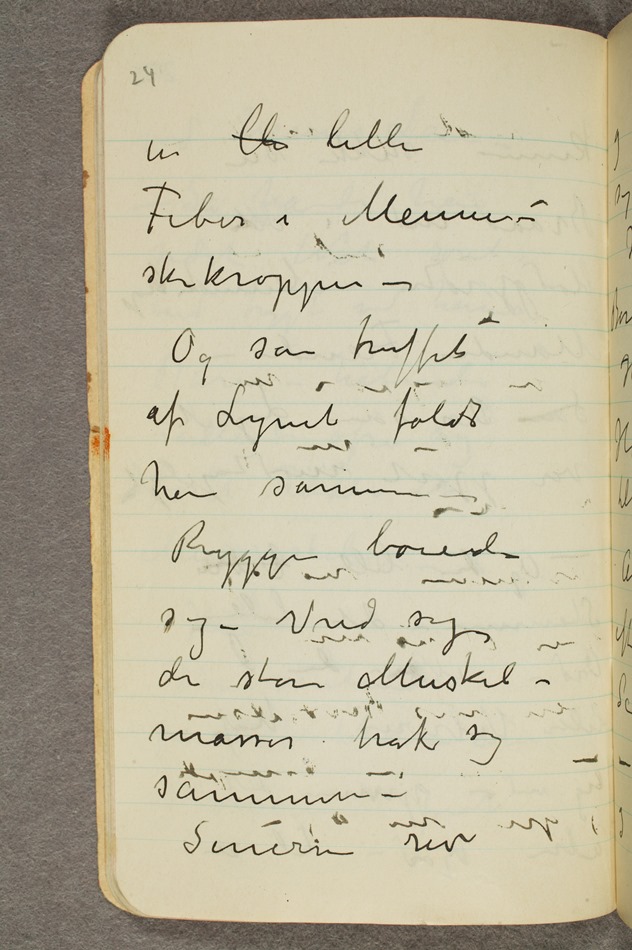 24
en lille
Fiber i Menne-
skekroppen –
Og som truffet
af Lynet faldt
han sammen –
Ryggen boiede
sig – Vred sig
de store Muskel-
masser trak sig
sammen –
Senerne rev